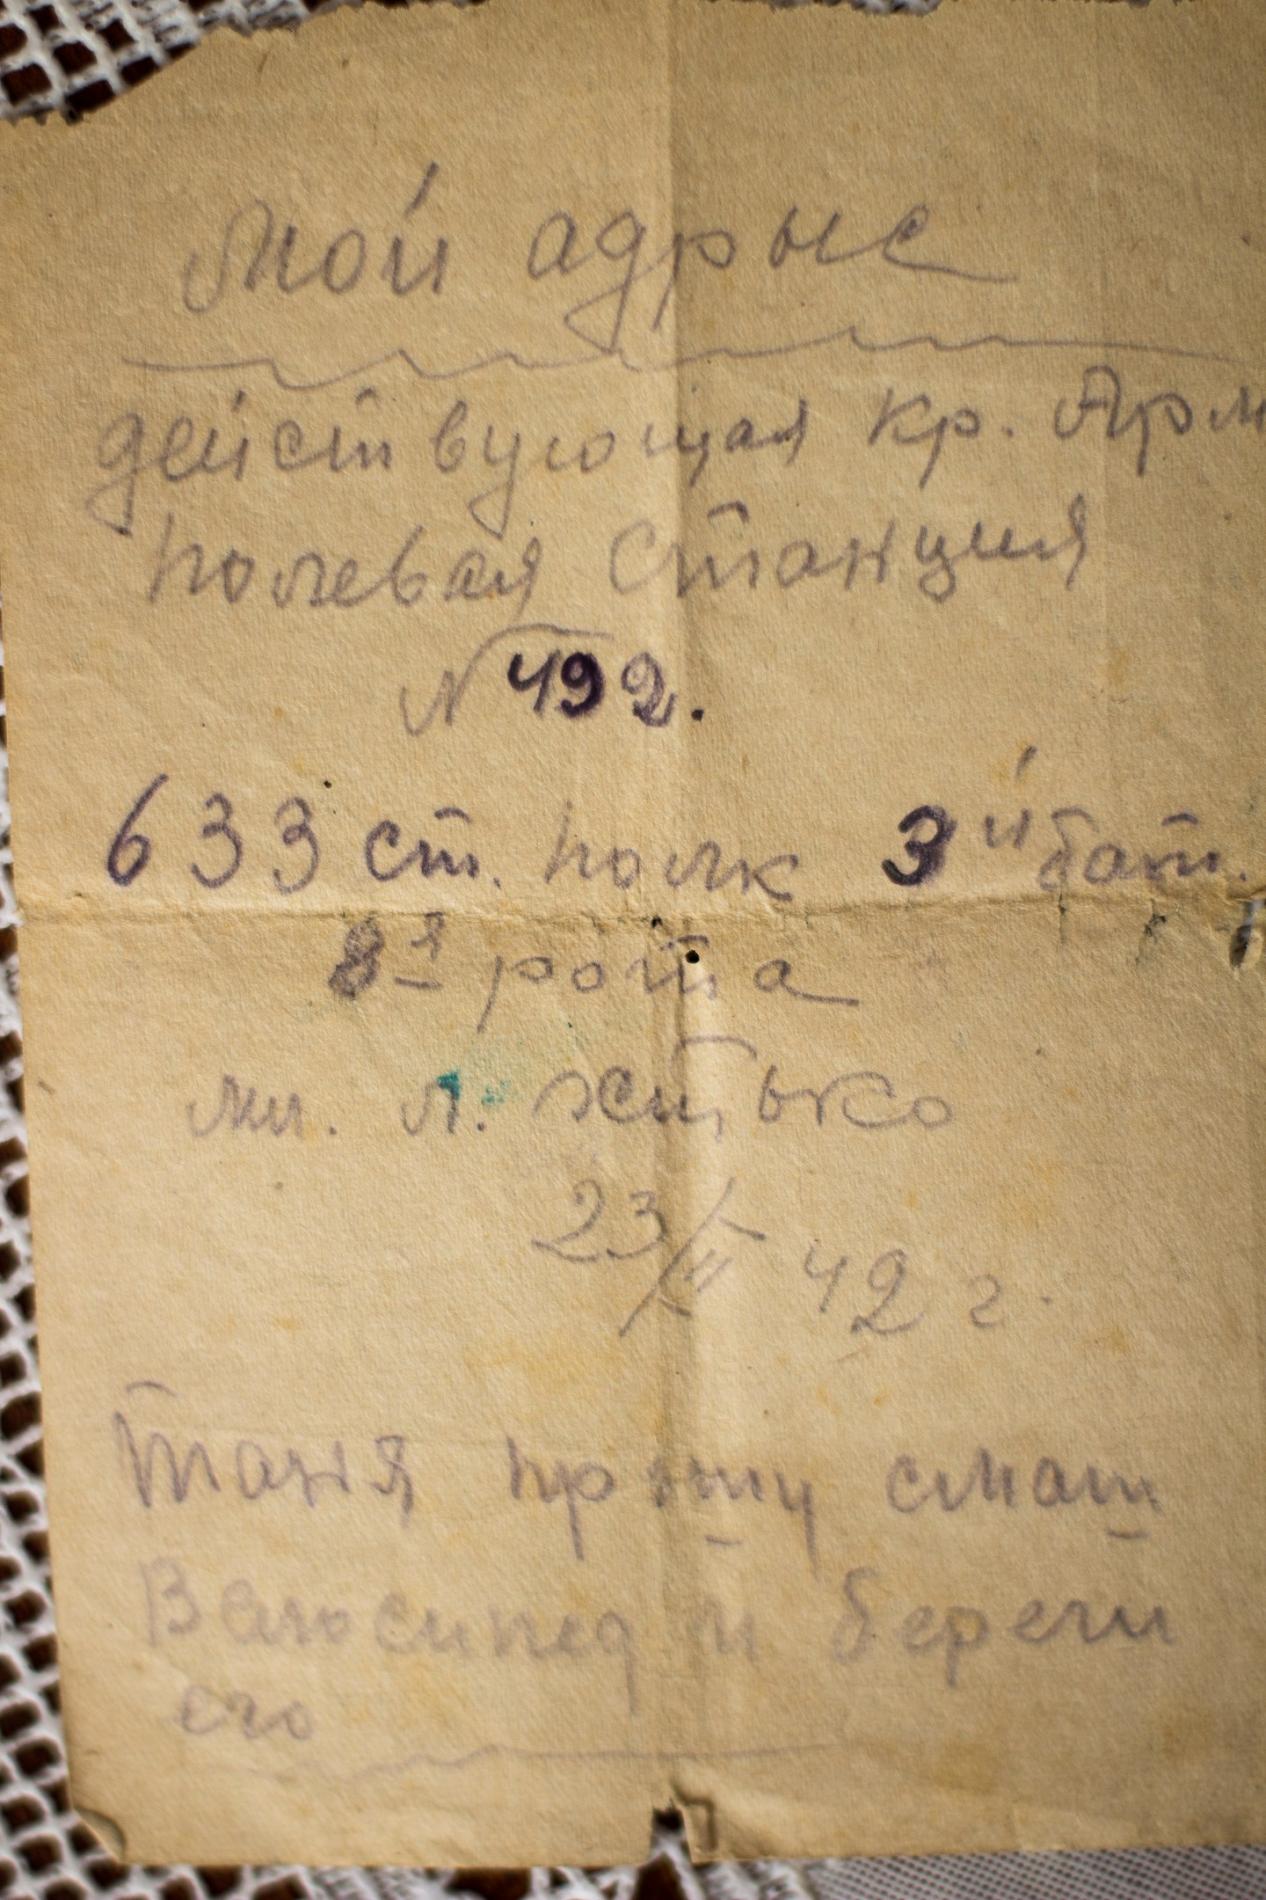 Мой адрыс
действующая кр. Арм
полевая станция
№ 492.
633 ст. полк 3й бат.
8я рота
мл. л.
23/II 42 г.
Таня прошу смаш
Валосипед и береги
его